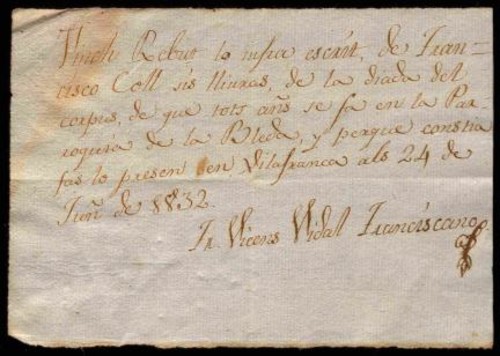 Tinch Rebut lo infra escrit, de Fran-
cisco Coll sis lliuras, de la diada del
corpus, de que tots añs se fa en la Par-
roquia de la Bleda, y perque constia
fas lo present en Vilafranca als 24 de
Juñ de 1832.
Fr. Vicens Vidal Franciscano